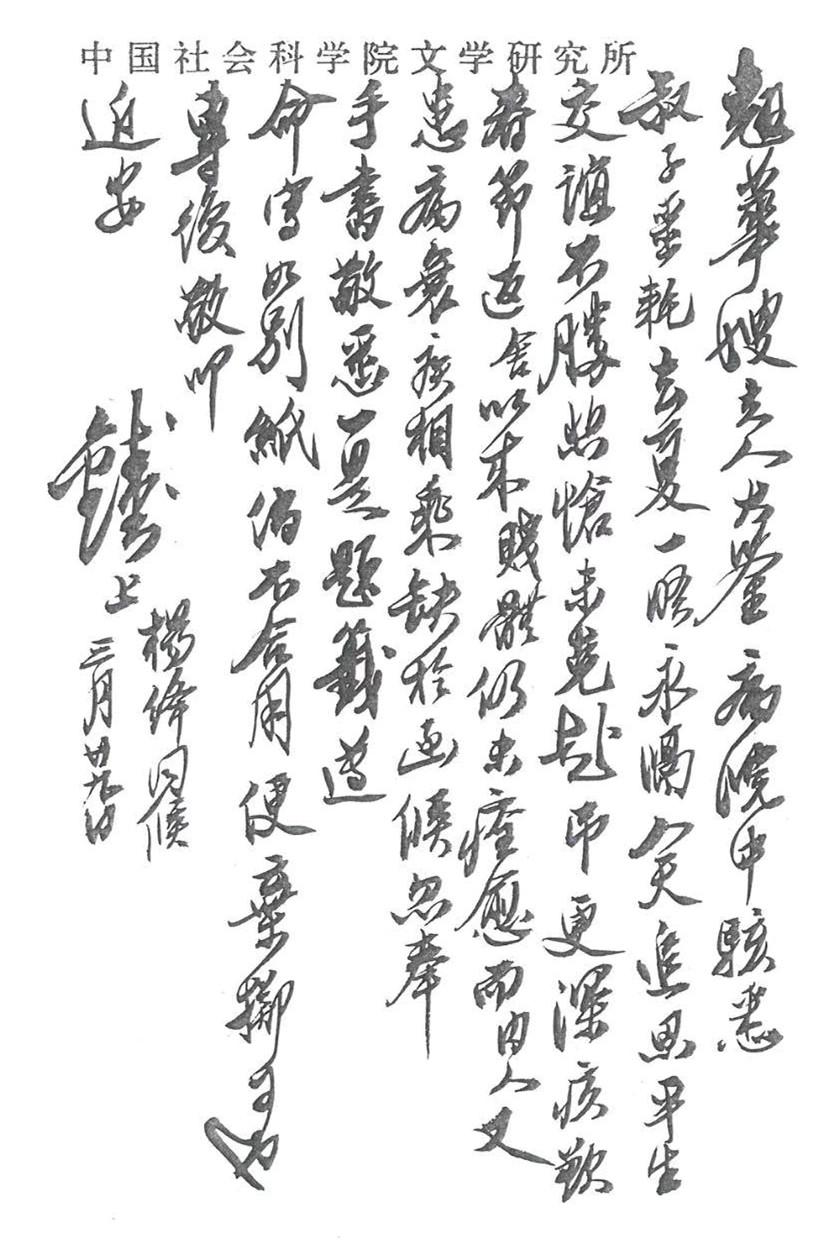 中国社会科学院文学研究所
翹華嫂夫人大鑒病院中駭悉
叔子噩耗去夏一晤永隔人天追思平生
交誼不勝悲愴未克赴弔更深疚歎
春節返舍以來賤體仍未痊愈而內人又
患病衰疾相乘缺於函候忽奉
手書敬悉一是題籤遵
命寫如別紙倘不合用便棄擲可也
專復敬叩
近安
鍾書上
楊絳同候
三月廿九日